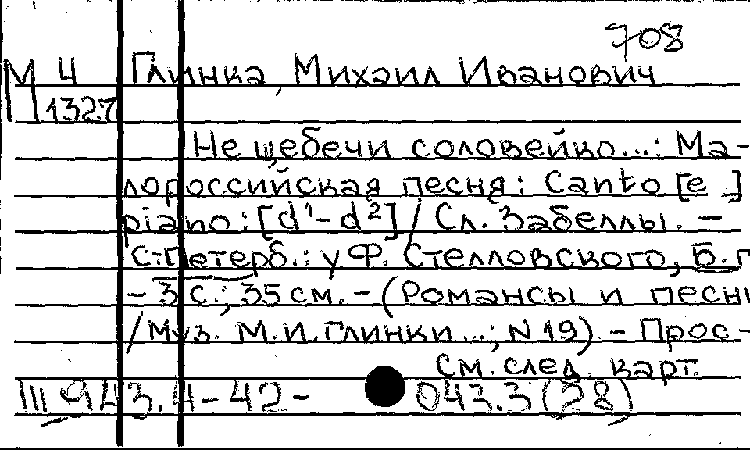 708
М 4 Глинка, Михаил Иванович
1327
Не щебечи соловейко...: Ма-
лороссийская песня: Canto [e]
piano: [d¹-d²] / Сл. Забеллы. –
С.-Петерб.: у Ф. Стелловского, Б.г.
– 3 с.; 35 см. – (Романсы и песни
/ Муз. М.И. Глинки...; N 19) – Прос-
См. след. карт.
III 943.4-42- 043.3(28)